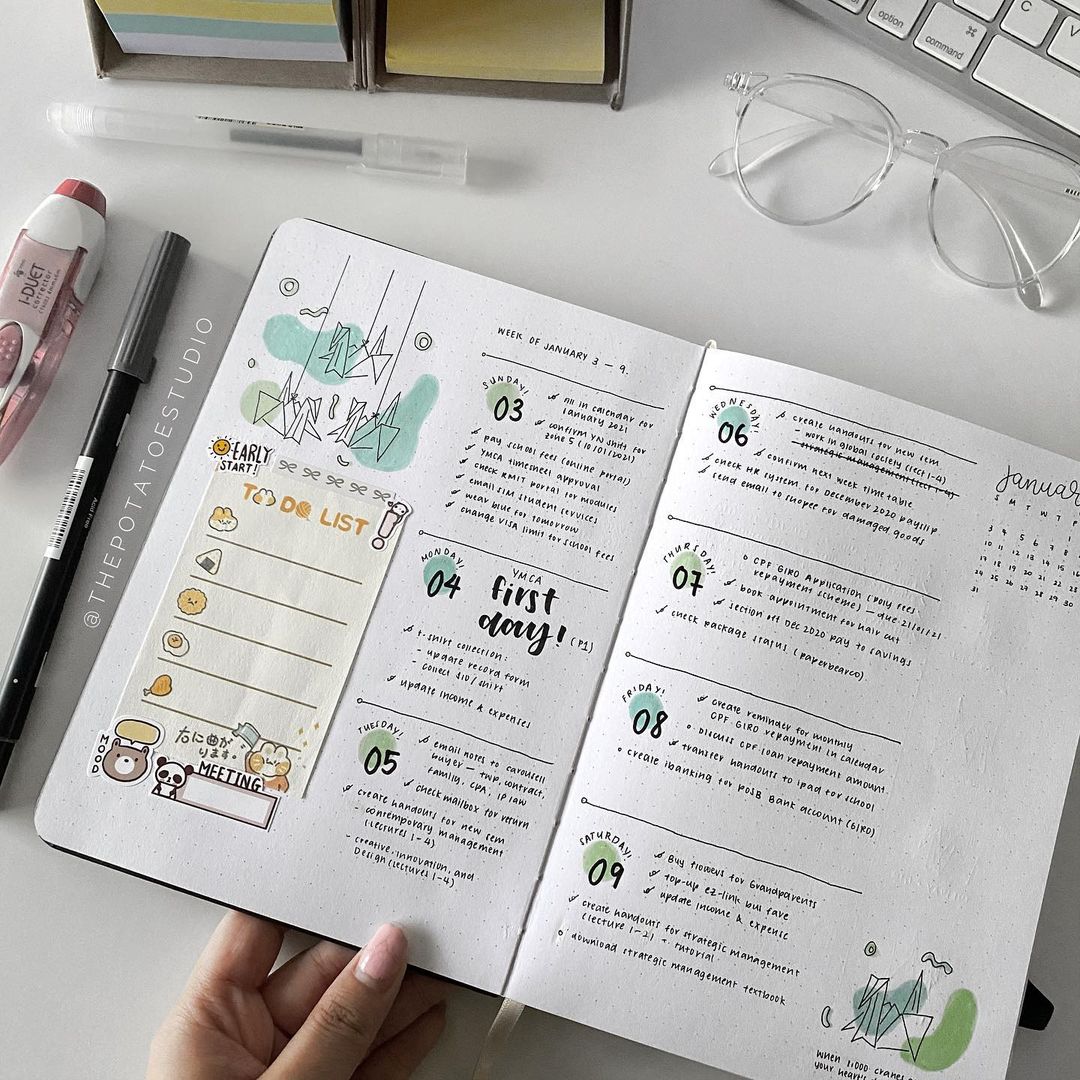 option
command
⌘
C
V
i-DUET
corrector
@THEPOTATOESTUDIO
EARLY
START!
TO DO LIST
右に曲が
ります。
MOOD
MEETING
WEEK OF JANUARY 3 — 9.
SUNDAY!
03
fill in calendar for
January 2021
confirm YN shift for
zone 5 (10/01/2021)
pay school fees (online portal)
YMCA timesheet approval
check RMIT portal for modules
email SIM student services
wear blue for tomorrow
change VISA limit for school fees
MONDAY!
04
YMCA
first
day!
(P1)
t-shirt collection:
- update record form
- collect $10/shirt
update income & expenses
TUESDAY!
05
email notes to carousell
buyer — TWP, contract,
family, CPA, IP law
check mailbox for return
create handouts for new sem
- contemporary management
(lectures 1-4)
- creative, innovation, and
Design (lectures 1-4)
WEDNESDAY!
06
create handouts for new sem
- work in global society (lect 1-4)
- strategic management (lect 1-4)
confirm next week timetable
check HR system for December 2020 payslip
send email to shopee for damaged goods
THURSDAY!
07
CPF GIRO Application (poly fees
repayment scheme) — due 21/01/21
book appointment for hair cut
section off Dec 2020 pay to savings
check package status (paperbearco).
FRIDAY!
08
create reminder for monthly
CPF GIRO repayment in calendar
discuss CPF loan repayment amount
transfer handouts to ipad for school
create ibanking for POSB Bank account (GIRO)
SATURDAY!
09
Buy flowers for Grandparents
top-up ez-link bus fare
update income & expense
create handouts for strategic management
(lecture 1-2) + tutorial
download strategic management textbook
S M T W T F
3 4 5 6 7 8
10 11 12 13 14 15
17 18 19 20 21 22
24 25 26 27 28 29
31
when 1,000 cranes
your heart's